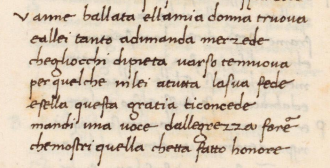 Vanne ballata ellamia donna truova
eallei tanto adimanda merzede
chegliocchi dipieta uarso temuova
perquelche nilei atutta lasua fede
esella questa gratia ticoncede
mandi una uoce dallegrezza fore
chemostri quella chetta fatto honore